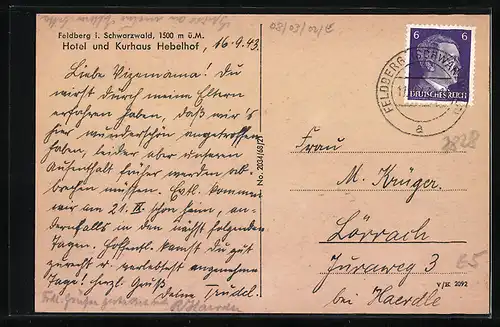 Feldberg i. Schwarzwald, 1500 m ü.M.
Hotel und Kurhaus Hebelhof, 16.9.43.
Liebe ! Du
wirst durch meine Eltern
erfahren haben, daß wir's
hier wunderschön angetroffen
haben, leider aber unseren
Aufenthalt früher werden ab-
brechen müssen. Evtl. kommen
wir am 21. IX. schon heim, an-
dernfalls in den nächst folgenden
Tagen. Hoffentl. kamst Du gut
zurecht u. verlebtest angenehme
Tage! Herzl. Grüße
Deine Trudel.
No. 2034/68/21
08/03/02/2
6 6
DEUTSCHES REICH
FELDBERG (SCHWARZW)
a
2828
Frau
M. Krüger.
Lörrach
Juraweg 3
bei Haerdle
65
V/IX 2092